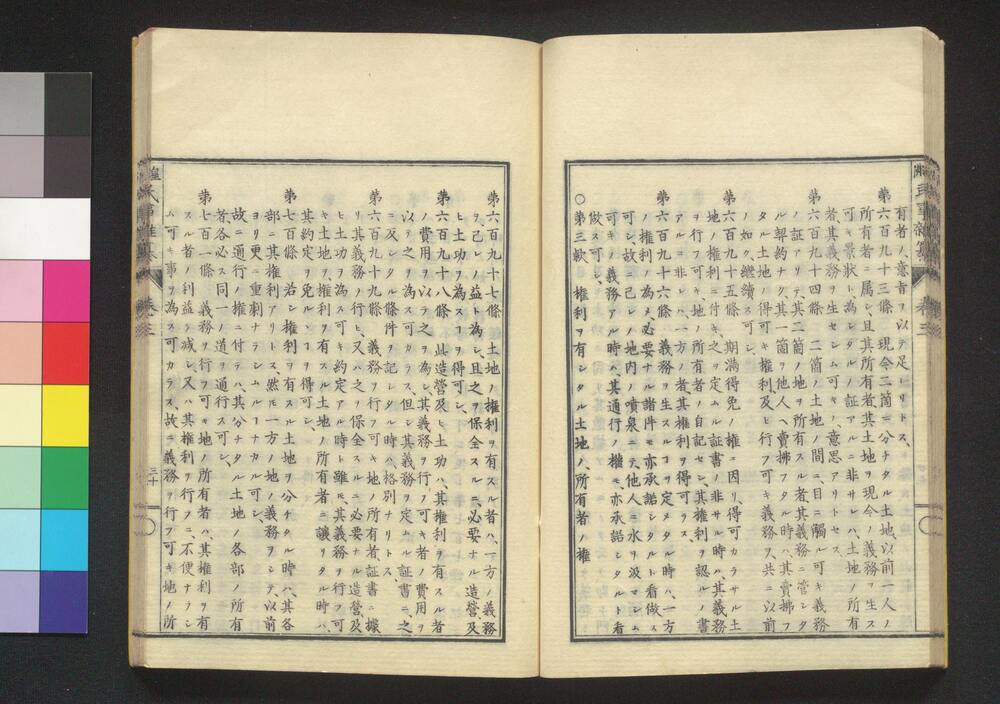 有者ノ意旨ヲ以テ足レリトス、
第六百九十三條　現今二箇ニ分チタル土地、以前一人ノ
所有者ニ属シ、且其所有者、其土地ヲ現今ノ義務ヲ生ス
可キ景状ト為シタルノ証アルニ非サレハ、土地ノ所有
者、其義務ヲ生セシム可キノ意思アリトセス、
第六百九十四條　二箇ノ土地ノ間ニ、目ニ觸ル可キ義務
ノ証アリテ、其二箇ノ地ヲ所有スル者、其義務ニ管シタ
ル契約ナク、其一箇ヲ他人ヘ賣拂フタル時ハ、其賣拂フ
タル土地ノ得可キ權利及ヒ行フ可キ義務ヲ、共ニ以前
ノ如ク繼續ス可シ、
第六百九十五條　期満得免ノ權ニ因リ、得可カラサル土
地ノ權利ニ付キ、之ヲ定ムル証書ノ非サル時ハ、其義務
ヲ行フ可キ地ノ所有者ノ自記セシ、其權利ヲ認ルノ書
アルニ非レハ、一方ノ者、其權利ヲ得可カラス、
第六百九十六條　義務ヲ生セシムルコヲ得タル時ハ、一方
ノ權利ノ為メ、必要ナル諸件モ亦承諾シタルト看做ス
可シ、故ニ己レノ地内ノ噴泉ニテ、他人ニ水ヲ汲マシム
可キノ義務アル時ハ、其通行ノ權モ、亦承諾シタルト看
做ス可シ、
○第三款　權利ヲ有シタル土地ノ所有者ノ權
第六百九十七條　土地ノ權利ヲ有スル者ハ、一方ノ義務
ヲ己レノ益ト為シ、且之ヲ保全スルニ必要ナル造營及
ヒ土功ヲ為スコヲ得可シ、
第六百九十八條　此造營及ヒ土功ハ、其權利ヲ有スル者
ノ費用ヲ以テ之ヲ為シ、其義務ヲ行フ可キ者ノ費用ヲ
以テ之ヲ為ス可カラス、但シ其義務ヲ定ムル証書ニ、之
ニ反シタル條件ヲ記シタル時ハ、格別ナリトス、
第六百九十九條　義務ヲ行フ可キ地ノ所有者、証書ニ據
リ其義務ヲ行ヒ、又ハ之ヲ保全スルニ必要ナル造營及
ヒ土功ヲ為ス可キノ約定アル時ト雖モ、其義務ヲ行フ可
キ土地ヲ、權利ヲ有スル土地ノ所有者ニ讓リタル時ハ、
其約定ヲ免ルヽコヲ得可シ、
第七百條　若シ權利ヲ有スル土地ヲ分チタル時ハ、其各
部ニ其權利アリトス、然モ一方ノ地ノ義務ヲシテ、以前
ヨリ更ニ重劇ナラシムルコナカル可シ、
故ニ通行ノ權ニ付テハ、其分チタル土地ノ各部ノ所有
者、各必ス同一ノ道ヲ通行ス可シ、
第七百一條　義務ヲ行フ可キ地ノ所有者ハ、其權利ヲ有
スル者ノ利益ヲ減シ、又ハ其權利ヲ行フニ、不便ナラシ
ム可キ事ヲ為ス可カラス、故ニ義務ヲ行フ可キ地ノ所
卷三
三十